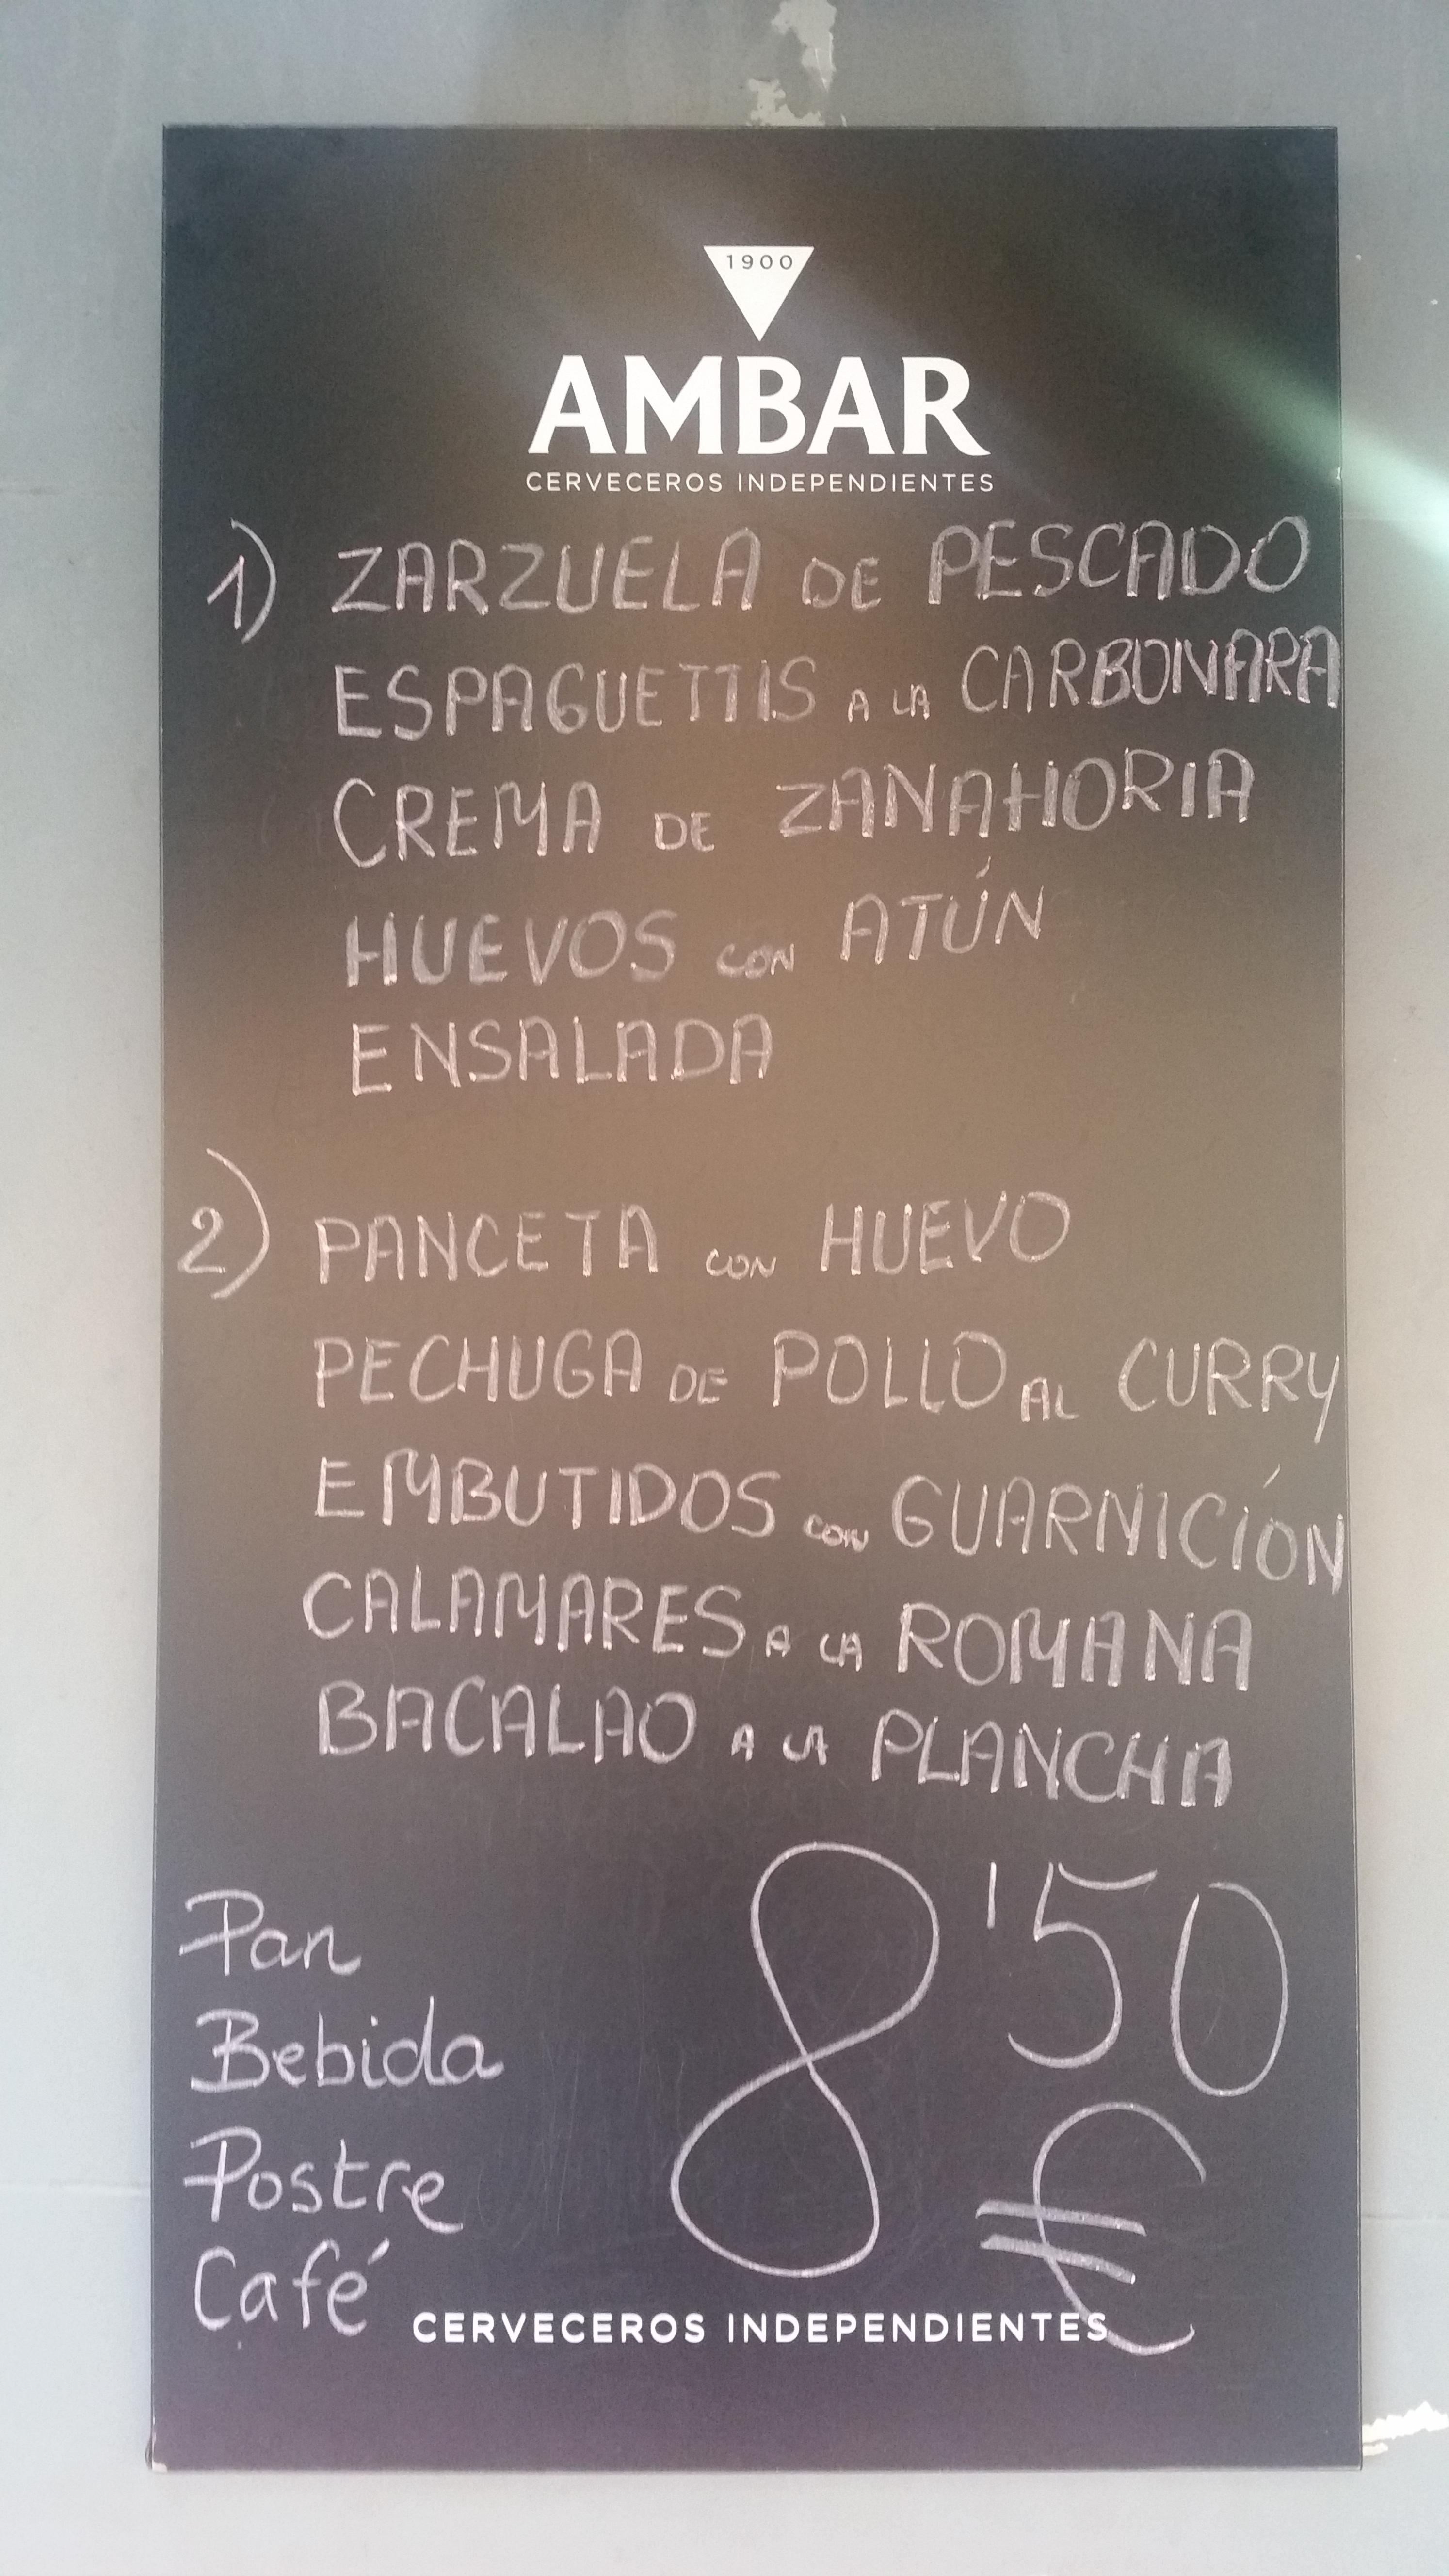 1900
AMBAR
CERVECEROS INDEPENDIENTES
1) ZARZUELA DE PESCADO
ESPAGUETTIS A LA CARBONARA
CREMA DE ZANAHORIA
HUEVOS CON ATÚN
ENSALADA
2) PANCETA CON HUEVO
PECHUGA DE POLLO AL CURRY
EMBUTIDOS CON GUARNICÍON
CALAMARES A LA ROMANA
BACALAO A LA PLANCHA
Pan
Bebida
Postre
Café
8'50
€
CERVECEROS INDEPENDIENTES